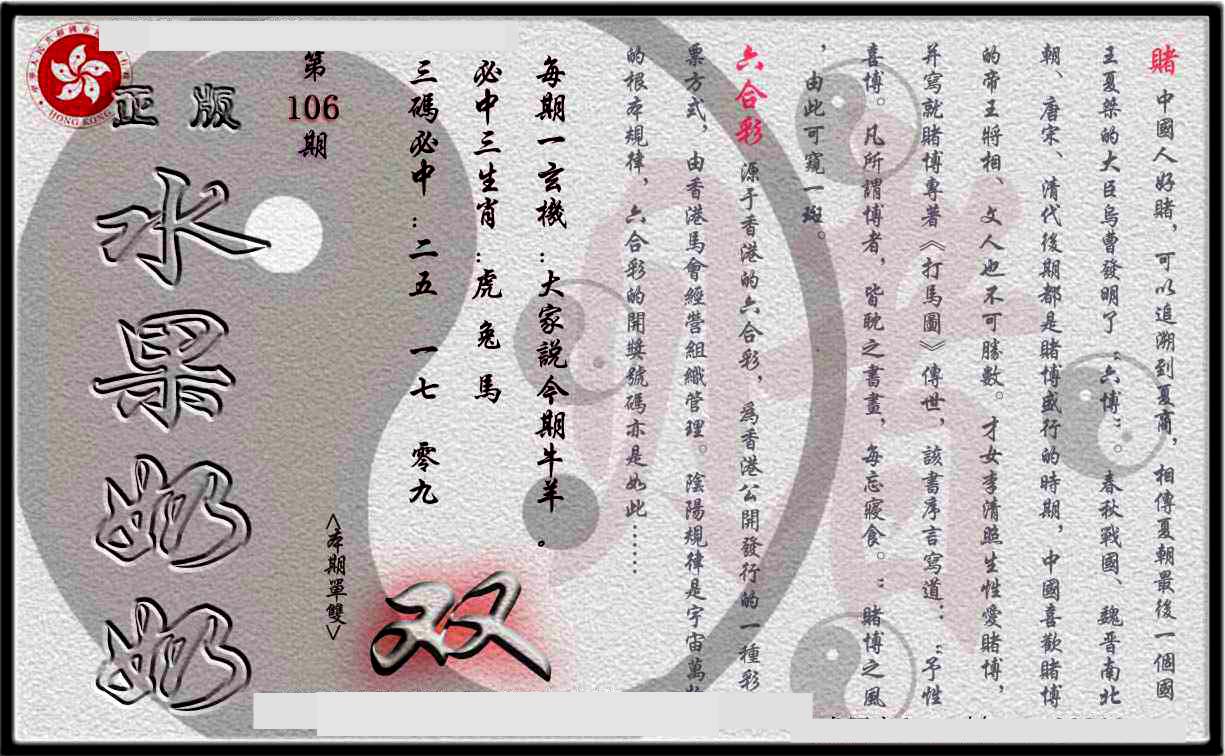 賭 中國人好賭，可以追溯到夏商，相傳夏朝最後一個國
王夏桀的大臣烏曹發明了“六博”。春秋戰國、魏晋南北
朝、唐宋、清代後期都是賭博盛行的時期，中國喜歡賭博
的帝王將相、文人也不可勝數。才女李清照生性愛賭博，
并寫就賭博專著《打馬圖》傳世，該書序言寫道：“予性
喜博。凡所謂博者，皆耽之書畫，每忘寢食。”賭博之風
，由此可窺一斑。
六合彩 源于香港的六合彩，為香港公開發行的一種彩
票方式，由香港馬會經營組織管理。陰陽規律是宇宙萬物
的根本規律，六合彩的開獎號碼亦是如此……
每期一玄機：大家説今期牛羊。
必中三生肖：虎 兔 馬
三碼必中：二五 一七 零九
第106期
<本期單雙>
双
正版
水果奶奶
HONG KONG